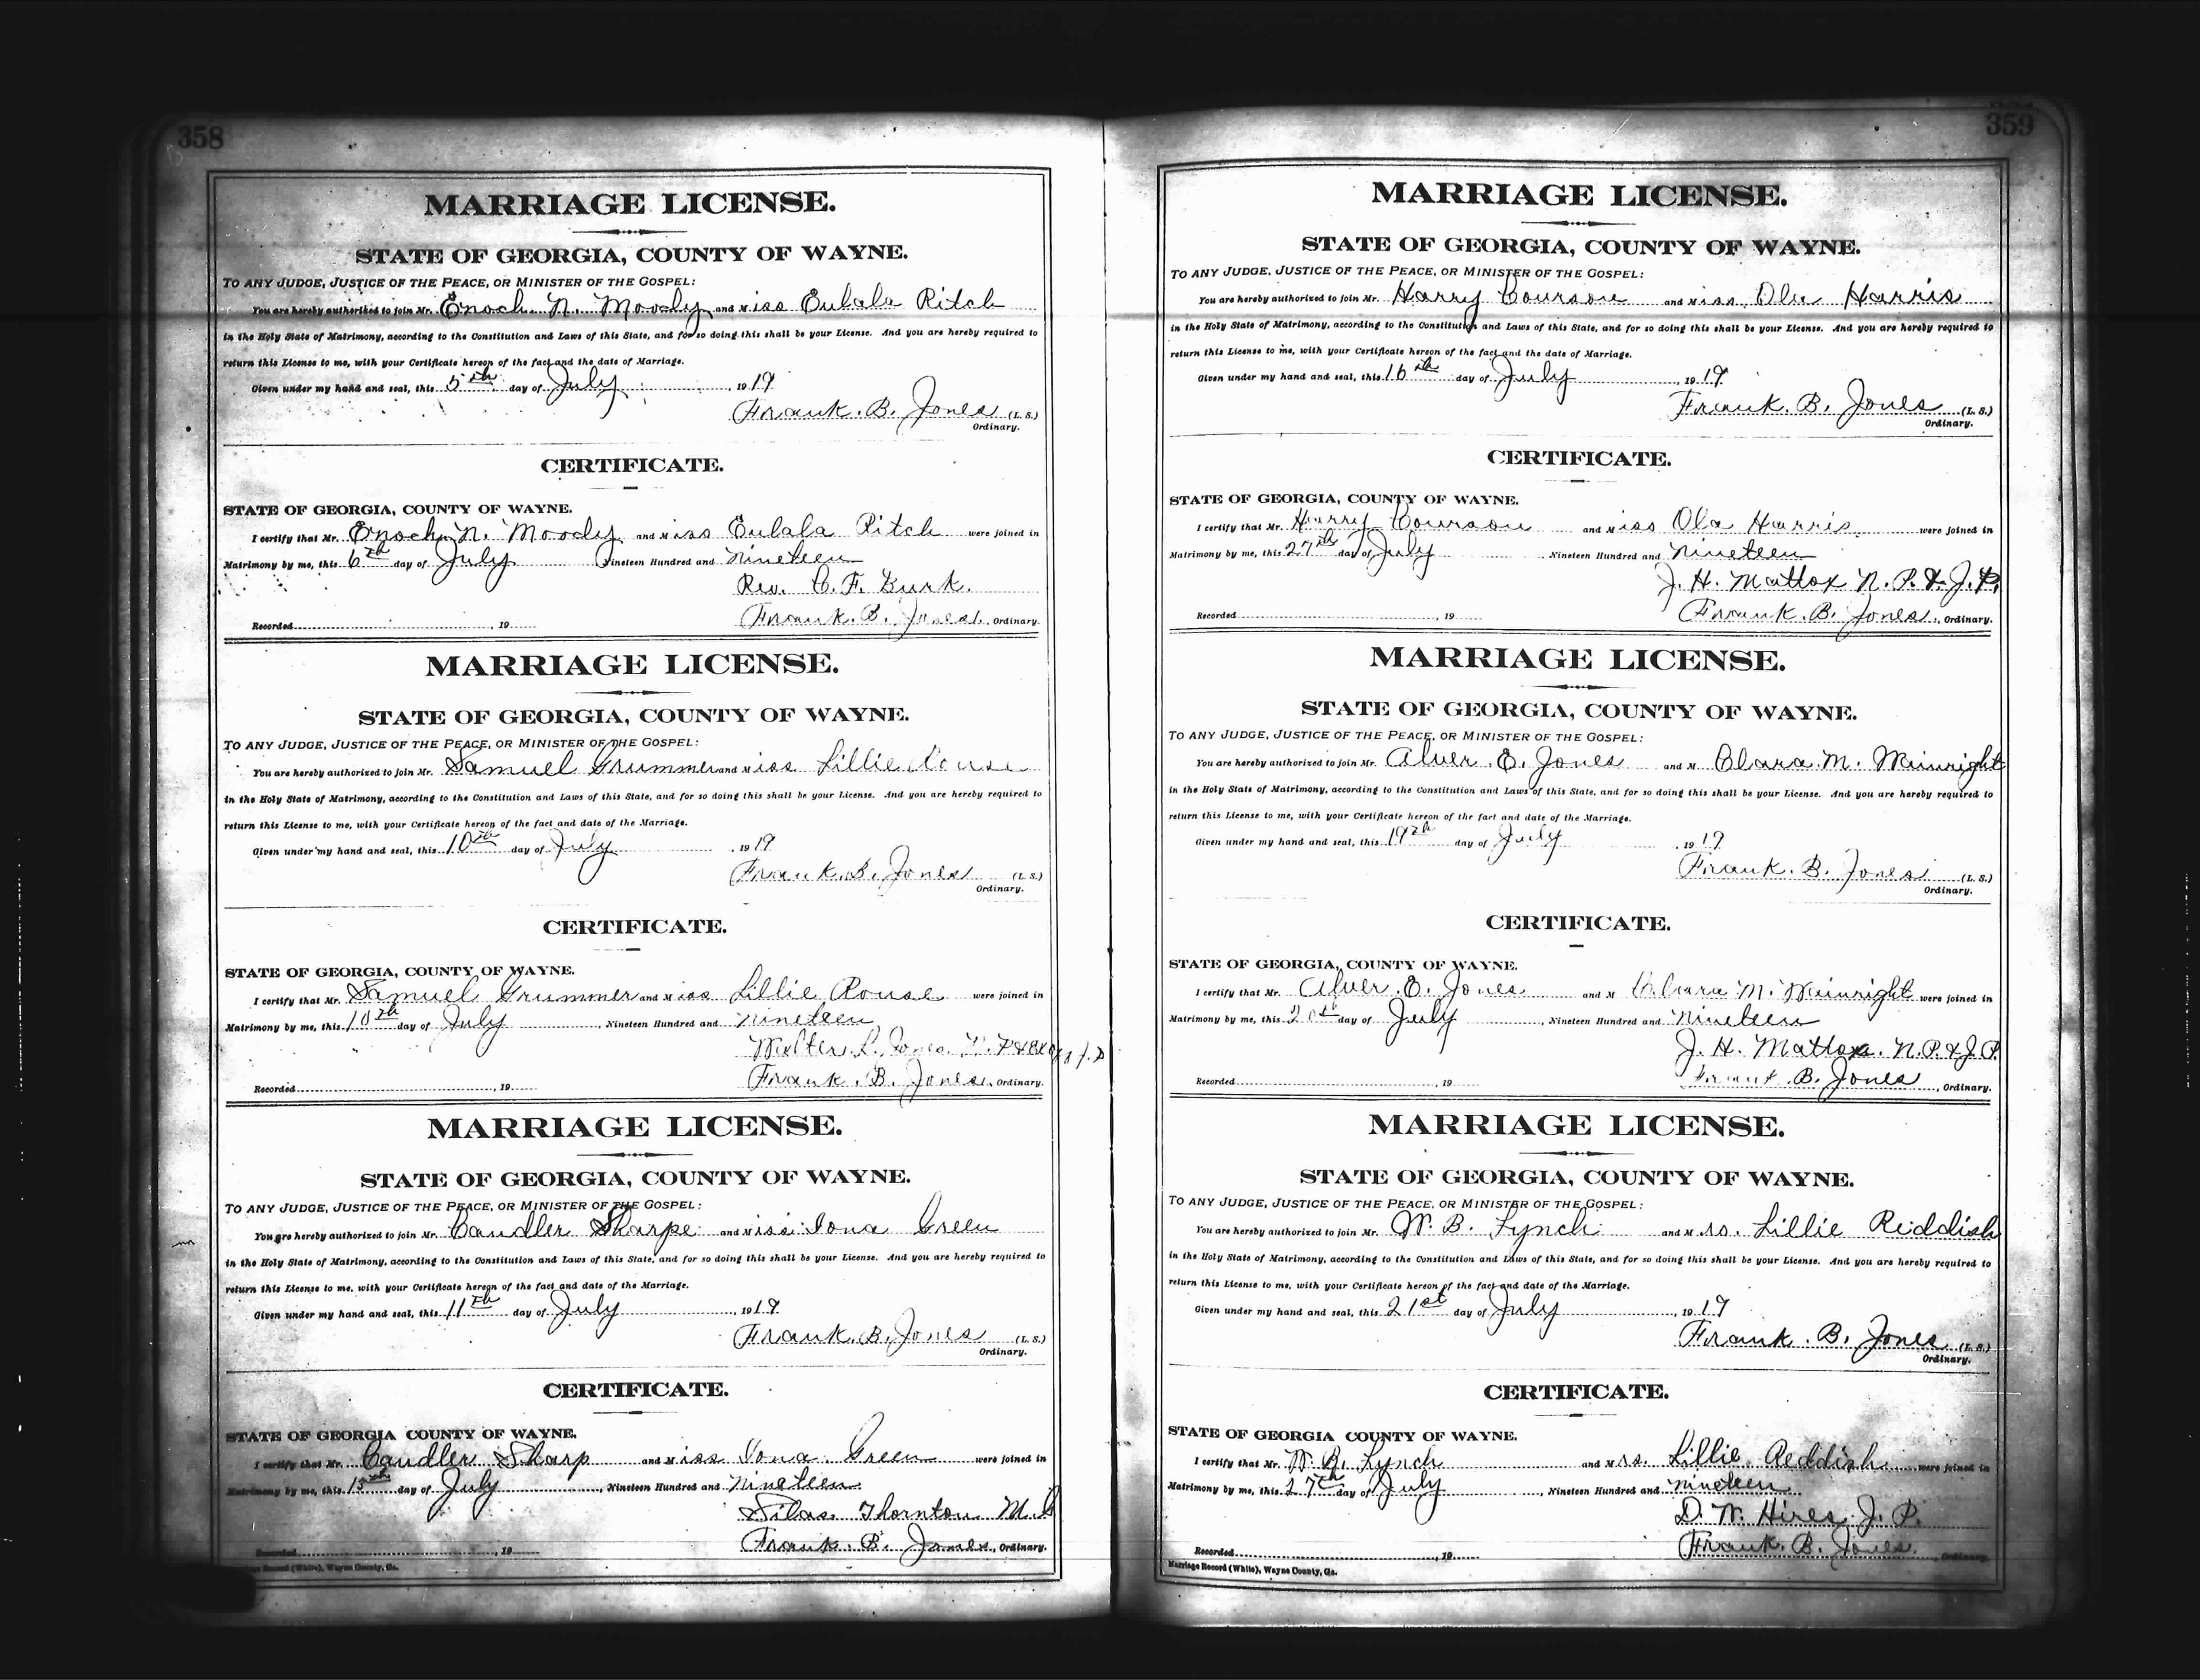 358
MARRIAGE LICENSE.
STATE OF GEORGIA, COUNTY OF WAYNE.
TO ANY JUDGE, JUSTICE OF THE PEACE, OR MINISTER OF THE GOSPEL:
You are hereby authorized to join Mr. Enoch N. Moody and Miss Eulala Ritch
in the Holy State of Matrimony, according to the Constitution and Laws of this State, and for so doing this shall be your License. And you are hereby required to
return this License to me, with your Certificate hereon of the fact and the date of Marriage.
Given under my hand and seal, this 5th day of July, 1919
Frank. B. Jones (L. S.)
Ordinary.
CERTIFICATE.
STATE OF GEORGIA, COUNTY OF WAYNE.
I certify that Mr. Enoch N. Moody and Miss Eulala Ritch were joined in
Matrimony by me, this 6th day of July Nineteen Hundred and nineteen
Rev. C. F. Burk.
Recorded , 19 Frank. B. Jones, Ordinary.
MARRIAGE LICENSE.
STATE OF GEORGIA, COUNTY OF WAYNE.
TO ANY JUDGE, JUSTICE OF THE PEACE, OR MINISTER OF THE GOSPEL:
You are hereby authorized to join Mr. Samuel Grummer and Miss Lillie Rouse
in the Holy State of Matrimony, according to the Constitution and Laws of this State, and for so doing this shall be your License. And you are hereby required to
return this License to me, with your Certificate hereon of the fact and date of the Marriage.
Given under my hand and seal, this 10th day of July, 1919
Frank. B. Jones (L. S.)
Ordinary.
CERTIFICATE.
STATE OF GEORGIA, COUNTY OF WAYNE.
I certify that Mr. Samuel Grummer and Miss Lillie Rouse were joined in
Matrimony by me, this 10th day of July, Nineteen Hundred and nineteen
Walter. L. Jones J. P.
Recorded , 19 Frank. B. Jones, Ordinary.
MARRIAGE LICENSE.
STATE OF GEORGIA, COUNTY OF WAYNE.
TO ANY JUDGE, JUSTICE OF THE PEACE, OR MINISTER OF THE GOSPEL:
You are hereby authorized to join Mr. Candler Sharpe and Miss Iona Green
in the Holy State of Matrimony, according to the Constitution and Laws of this State, and for so doing this shall be your License. And you are hereby required to
return this License to me, with your Certificate hereon of the fact and date of the Marriage.
Given under my hand and seal, this 11th day of July, 1919
Frank. B. Jones (L. S.)
Ordinary.
CERTIFICATE.
STATE OF GEORGIA COUNTY OF WAYNE.
I certify that Mr. Candler Sharp and Miss Iona Green were joined in
Matrimony by me, this 13th day of July, Nineteen Hundred and nineteen
Silas Thornton M. G
Recorded , 19 Frank. B. Jones, Ordinary.
Record (White), Wayne County, Ga.
359
MARRIAGE LICENSE.
STATE OF GEORGIA, COUNTY OF WAYNE.
TO ANY JUDGE, JUSTICE OF THE PEACE, OR MINISTER OF THE GOSPEL:
You are hereby authorized to join Mr. Harry Courson and Miss Ola Harris
in the Holy State of Matrimony, according to the Constitution and Laws of this State, and for so doing this shall be your License. And you are hereby required to
return this License to me, with your Certificate hereon of the fact and the date of Marriage.
Given under my hand and seal, this 16th day of July, 1919
Frank. B. Jones (L. S.)
Ordinary.
CERTIFICATE.
STATE OF GEORGIA, COUNTY OF WAYNE.
I certify that Mr. Harry Courson and Miss Ola Harris were joined in
Matrimony by me, this 27th day of July, Nineteen Hundred and nineteen
J. H. Mattox N. P. & J. P.
Recorded , 19 Frank. B. Jones, Ordinary.
MARRIAGE LICENSE.
STATE OF GEORGIA, COUNTY OF WAYNE.
TO ANY JUDGE, JUSTICE OF THE PEACE, OR MINISTER OF THE GOSPEL:
You are hereby authorized to join Mr. Alver. E. Jones and M Clara. M. Wainright
in the Holy State of Matrimony, according to the Constitution and Laws of this State, and for so doing this shall be your License. And you are hereby required to
return this License to me, with your Certificate hereon of the fact and the date of Marriage.
Given under my hand and seal, this 19th day of July, 1919
Frank. B. Jones (L. S.)
Ordinary.
CERTIFICATE.
STATE OF GEORGIA, COUNTY OF WAYNE.
I certify that Mr. Alver. E. Jones and M Clara M. Wainright were joined in
Matrimony by me, this 20th day of July, Nineteen Hundred and nineteen
J. H. Mattox. N. P. & J. P.
Recorded , 19 Frank. B. Jones, Ordinary.
MARRIAGE LICENSE.
STATE OF GEORGIA, COUNTY OF WAYNE.
TO ANY JUDGE, JUSTICE OF THE PEACE, OR MINISTER OF THE GOSPEL:
You are hereby authorized to join Mr. W. B. Lynch and Mrs. Lillie Reddish
in the Holy State of Matrimony, according to the Constitution and Laws of this State, and for so doing this shall be your License. And you are hereby required to
return this License to me, with your Certificate hereon of the fact and the date of Marriage.
Given under my hand and seal, this 21st day of July, 1919
Frank. B. Jones (L. S.)
Ordinary.
CERTIFICATE.
STATE OF GEORGIA COUNTY OF WAYNE.
I certify that Mr. W. B. Lynch and Mrs. Lillie Reddish were joined in
Matrimony by me, this 27th day of July, Nineteen Hundred and nineteen
D. W. Hires J. P.
Recorded , 19 Frank. B. Jones, Ordinary.
Marriage Record (White), Wayne County, Ga.